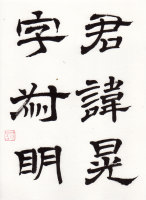 君諱晃
字明